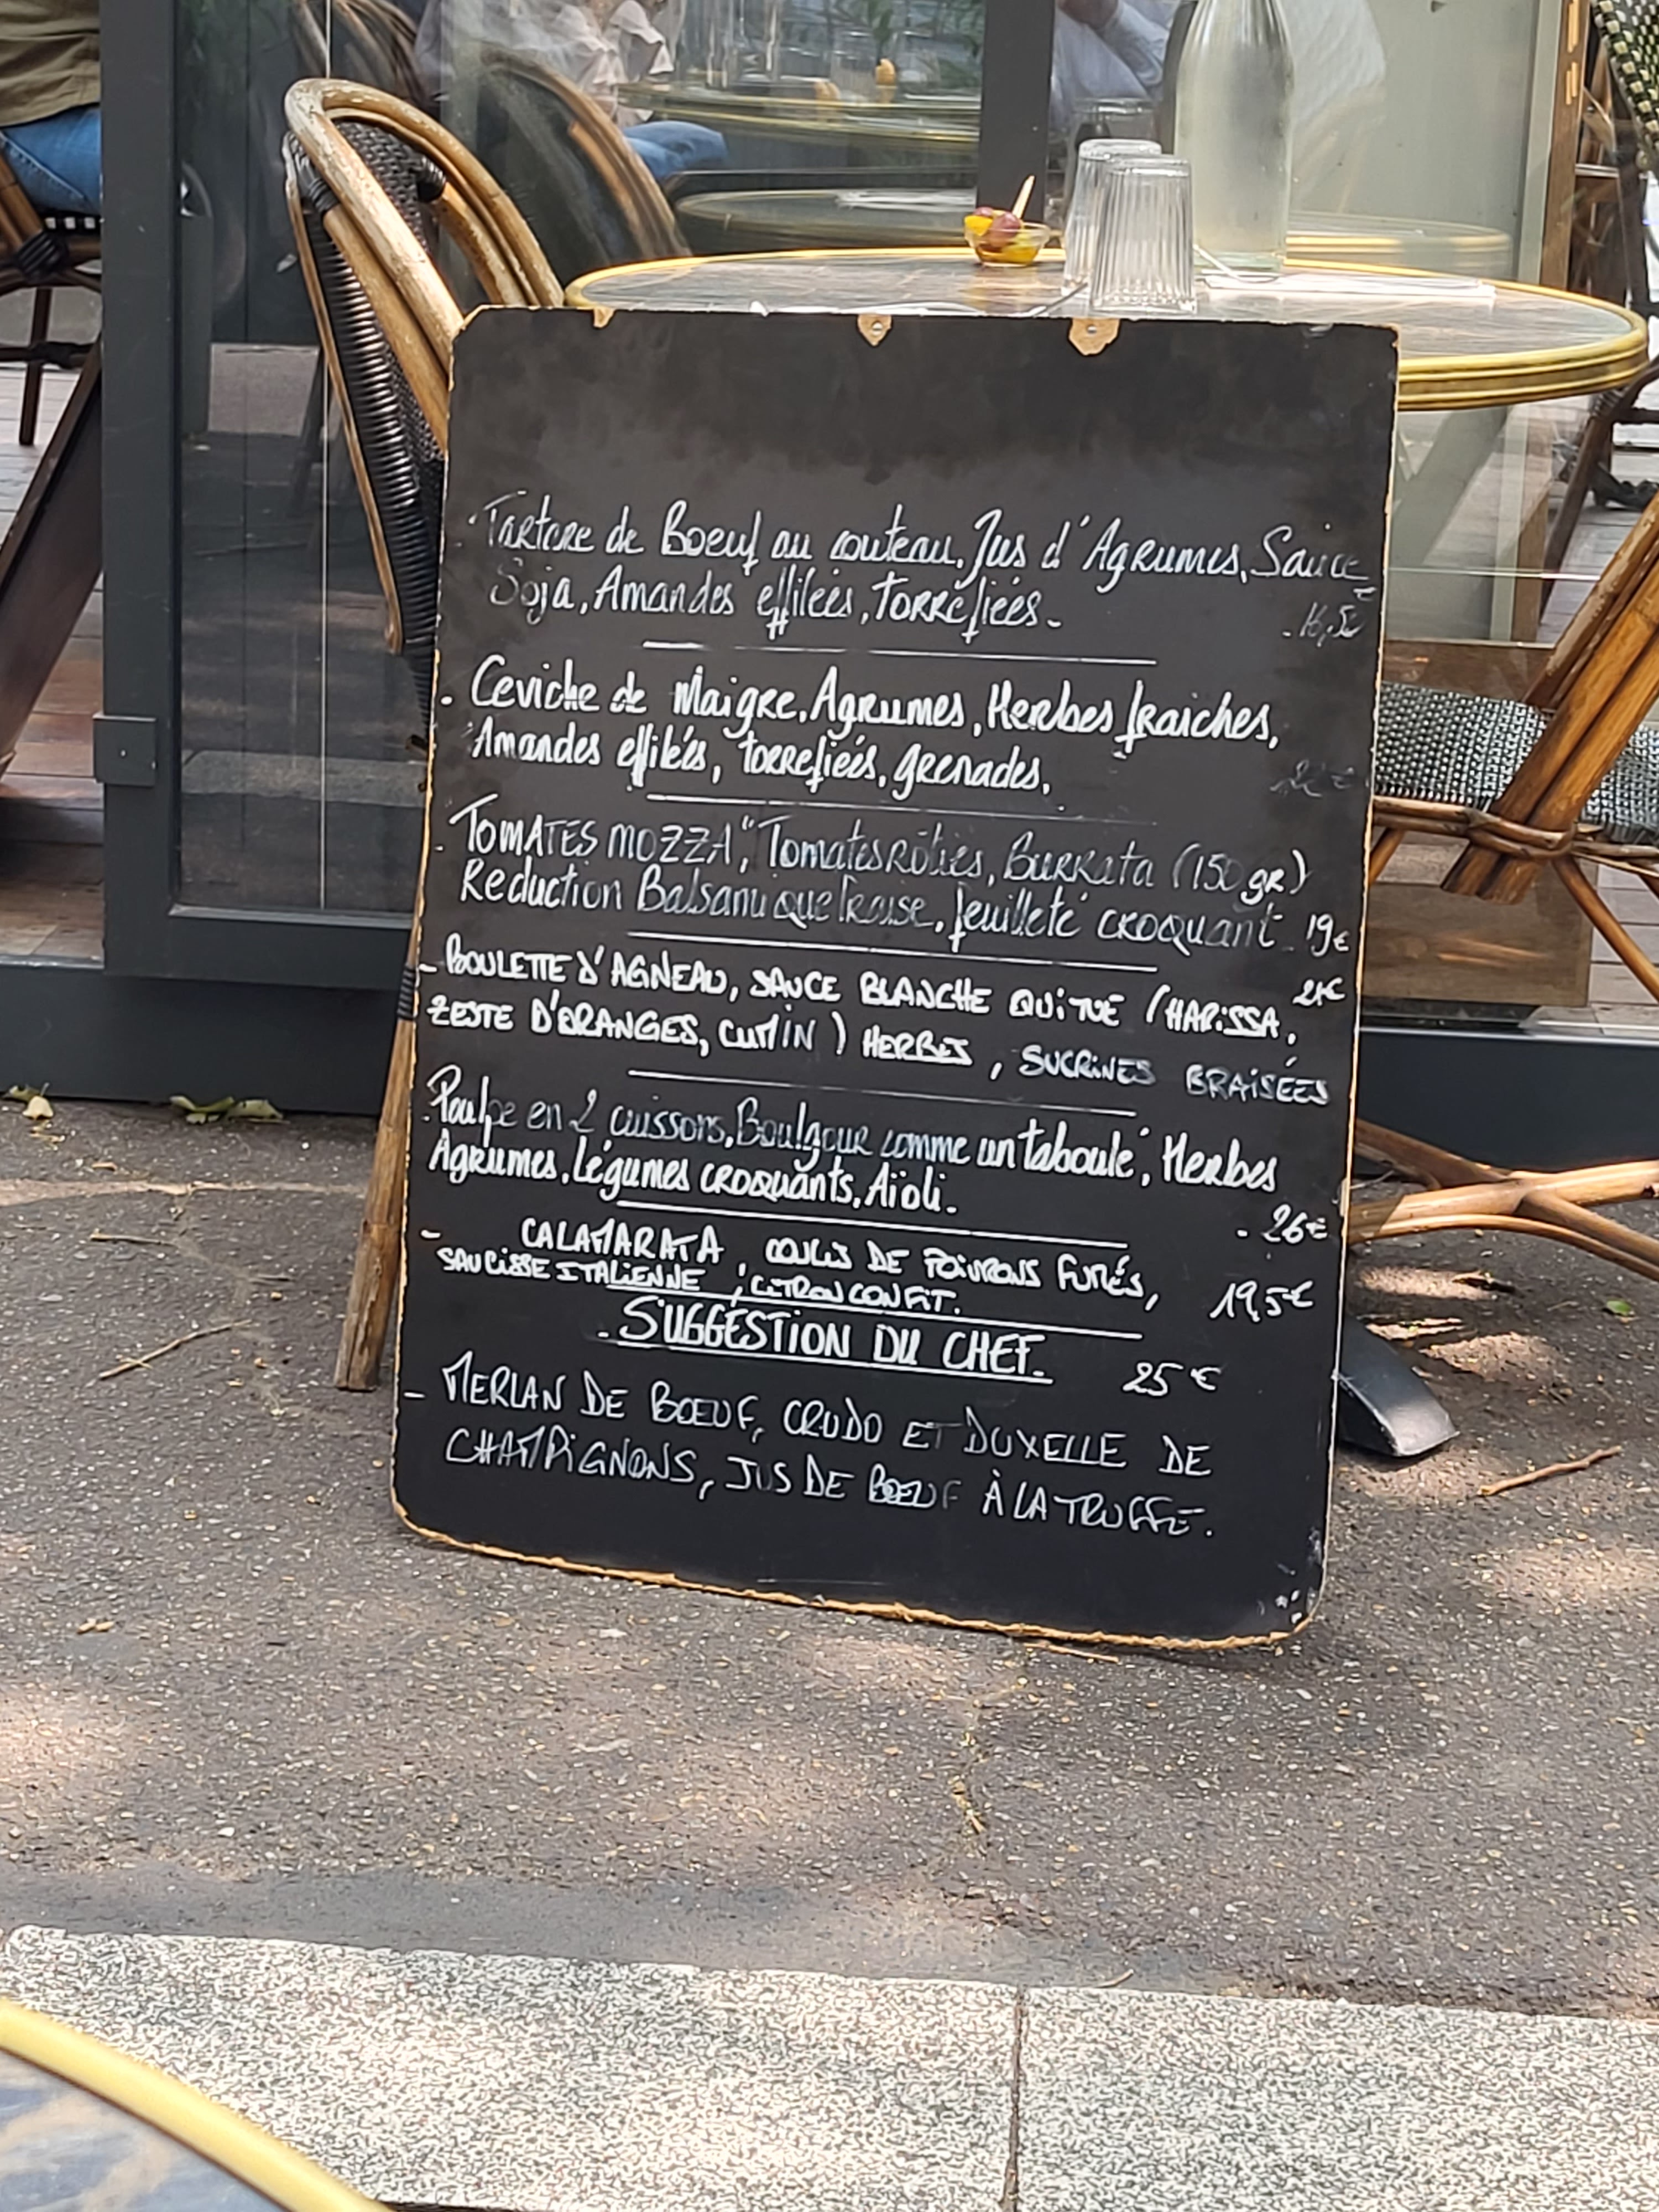 · Tartare de Boeuf au couteau, Jus d'Agrumes, Sauce
Soja, Amandes effilées, Torréfiées. - 16,5€
- Ceviche de Maigre, Agrumes, Herbes fraîches,
Amandes effilées, torrefiées, grenades.
- TOMATES MOZZA", Tomates Rôties, Burrata (150 gr)
Reduction Balsamique fraise, feuilleté croquant - 19€
- BOULETTE D'AGNEAU, SAUCE BLANCHE QUI TUE (HARISSA, 21€
ZESTE D'ORANGES, CUMIN) HERBES, SUCRINES BRAISÉES
- Poulpe en 2 cuissons, Boulgour comme un taboulé", Herbes
Agrumes, Légumes croquants, Aïoli. - 26€
- CALAMARATA, COULIS DE POIVRONS FUMÉS, 19,5€
SAUCISSE ITALIENNE, CITRON CONFIT.
- SUGGESTION DU CHEF. 25€
- MERLAN DE BOEUF, CRUDO ET DUXELLE DE
CHAMPIGNONS, JUS DE BOEUF À LA TRUFFE.